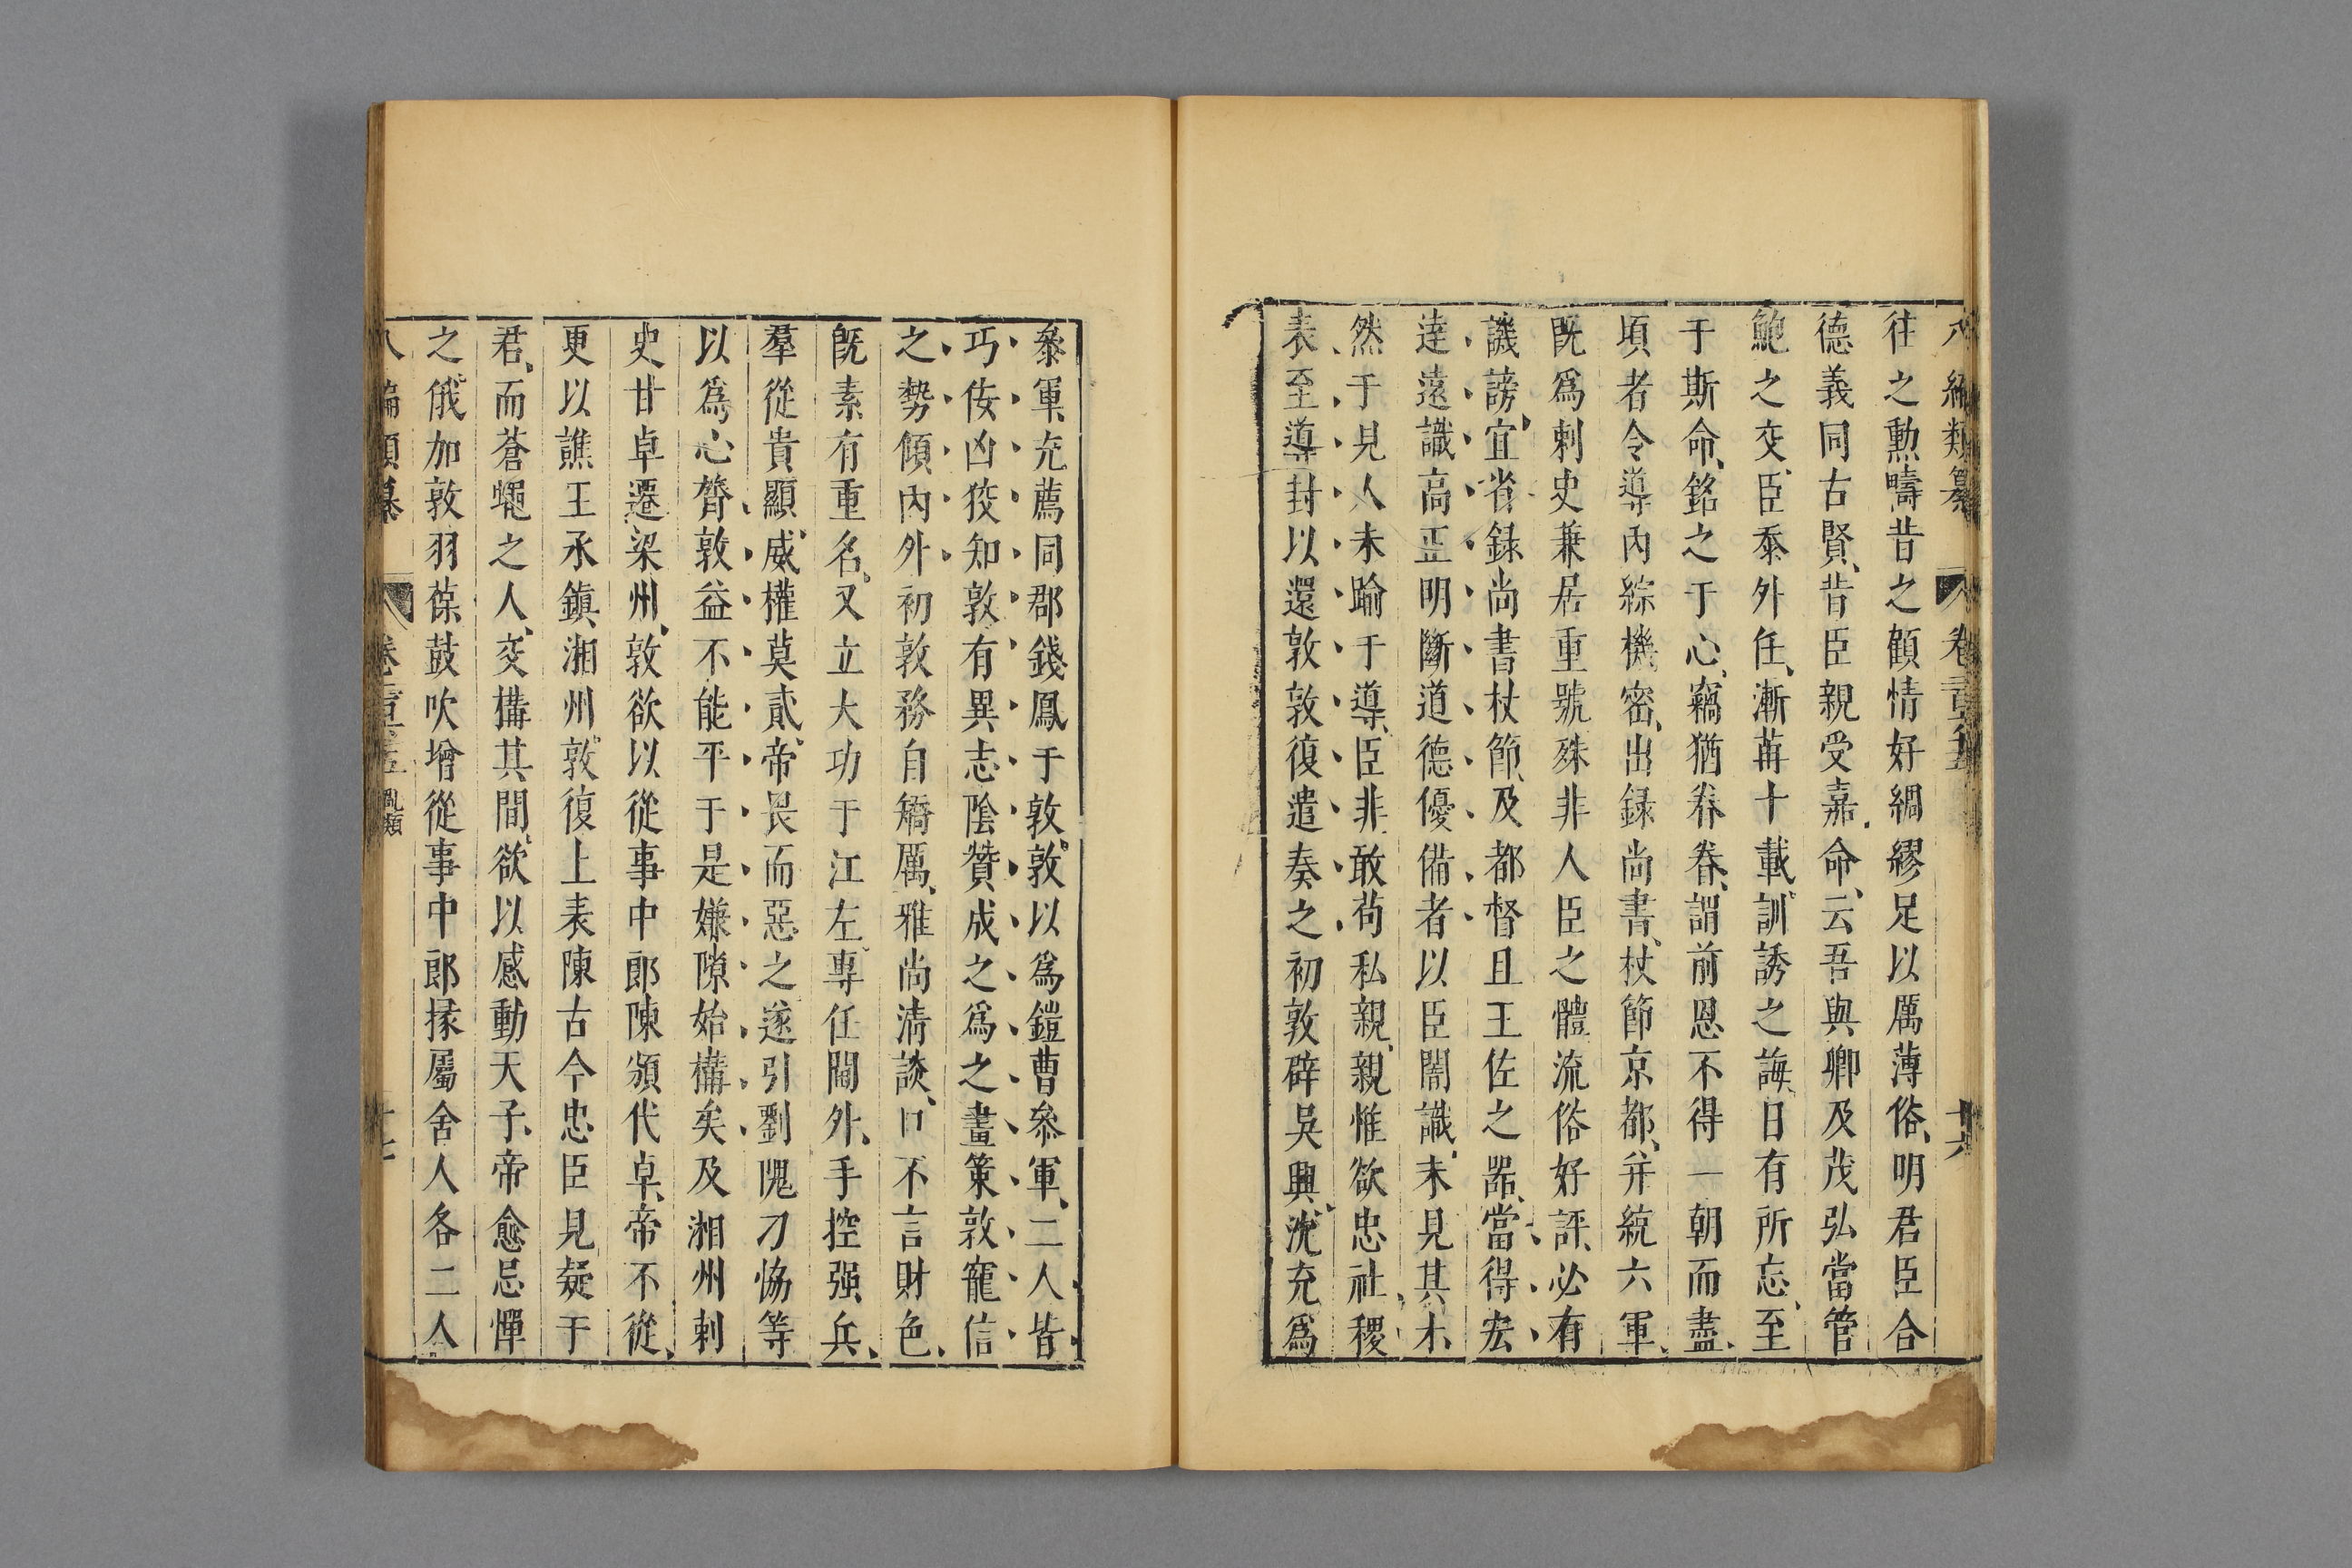 八編類纂 卷二百十五 十六
往之勲疇昔之顧情好綢繆足以厲薄俗明君臣合
德義同古賢昔臣親受嘉命云吾與卿及茂弘當管
鮑之交臣忝外任漸冉十載訓誘之誨日有所忘至
于斯命銘之于心竊猶眷眷謂前恩不得一朝而盡
頃者令導內綜機密出録尚書杖節京都并統六軍
既爲刺史兼居重號殊非人臣之體流俗好評必有
譏謗宜省録尚書杖節及都督且王佐之器當得宏
達遠識高正明斷道德優備者以臣闇識未見其木
然于見人未踰于導臣非敢苟私親親惟欲忠社稷
表至導封以還敦敦復遣奏之初敦辟吳興沈充爲
叅軍充薦同郡錢鳳于敦敦以爲鎧曹叅軍二人皆
巧佞凶狡知敦有異志陰贊成之爲之畫策敦寵信
之勢傾內外初敦務自矯厲雅尚清談口不言財色
既素有重名又立大功于江左專任閫外手控强兵
羣從貴顯威權莫貳帝畏而惡之遂引劉隗刁恊等
以爲心膂敦益不能平于是嫌隙始構矣及湘州刺
史甘卓遷梁州敦欲以從事中郎陳頒代卓帝不從
更以譙王氶鎮湘州敦復上表陳古今忠臣見疑于
君而蒼蠅之人交構其間欲以感動天子帝愈忌憚
之俄加敦羽葆鼓吹增從事中郎掾屬舍人各二人
八編類纂 卷二百十五 亂類 十七